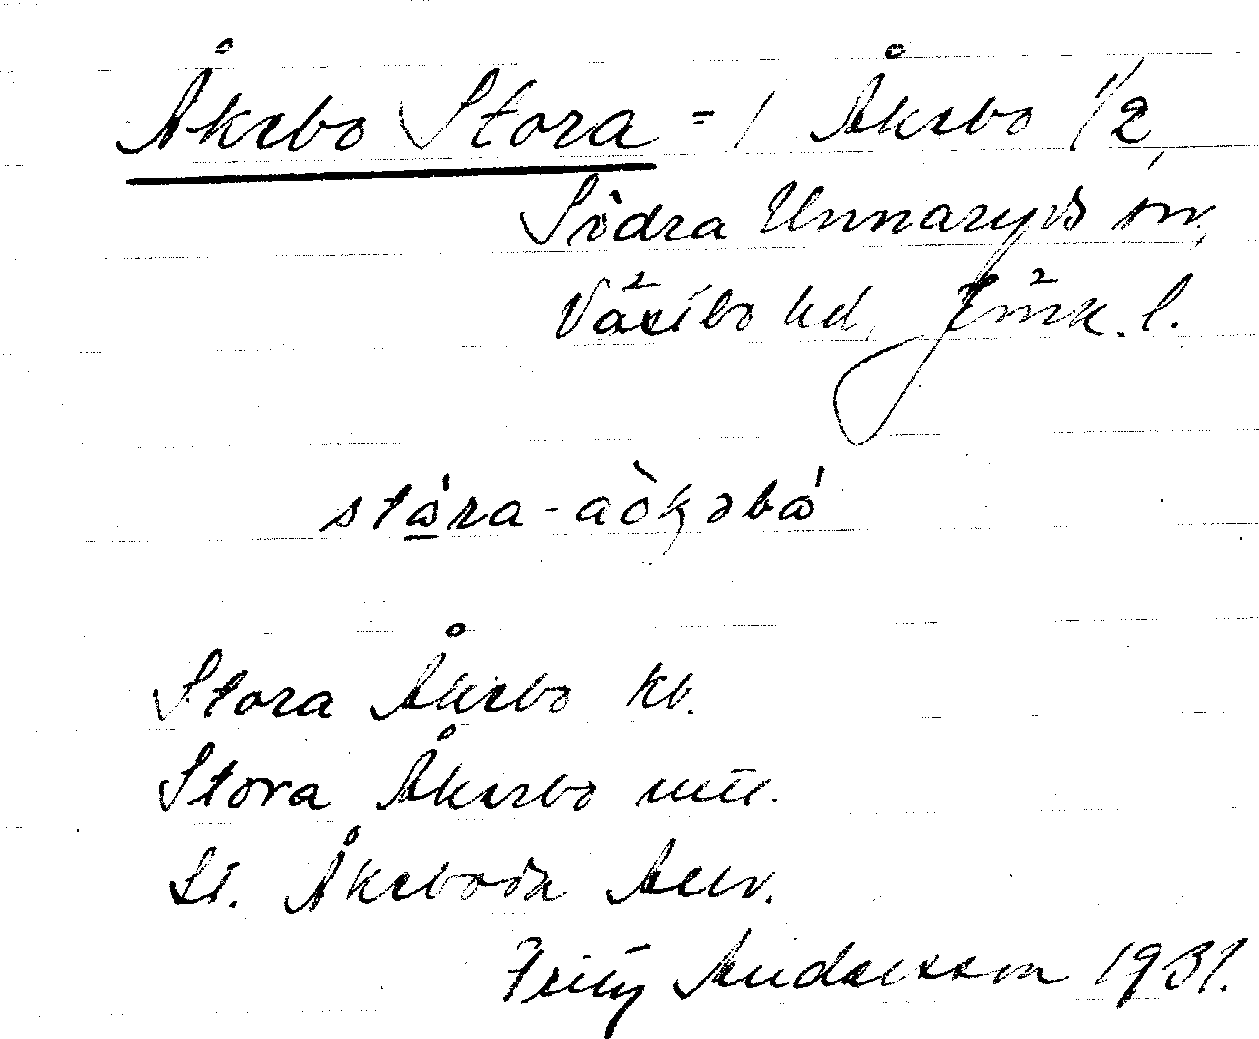 Åkebo Stora = / Åkebo 1/2,
Södra Unnaryds sn,
Västbo hd, Jönk. l.
stɷ́ra-aòkəbɷ́
Stora Åkebo kb.
Stora Åkerbo mtl.
St. Åkeboda
Fritz Andersson 1931.